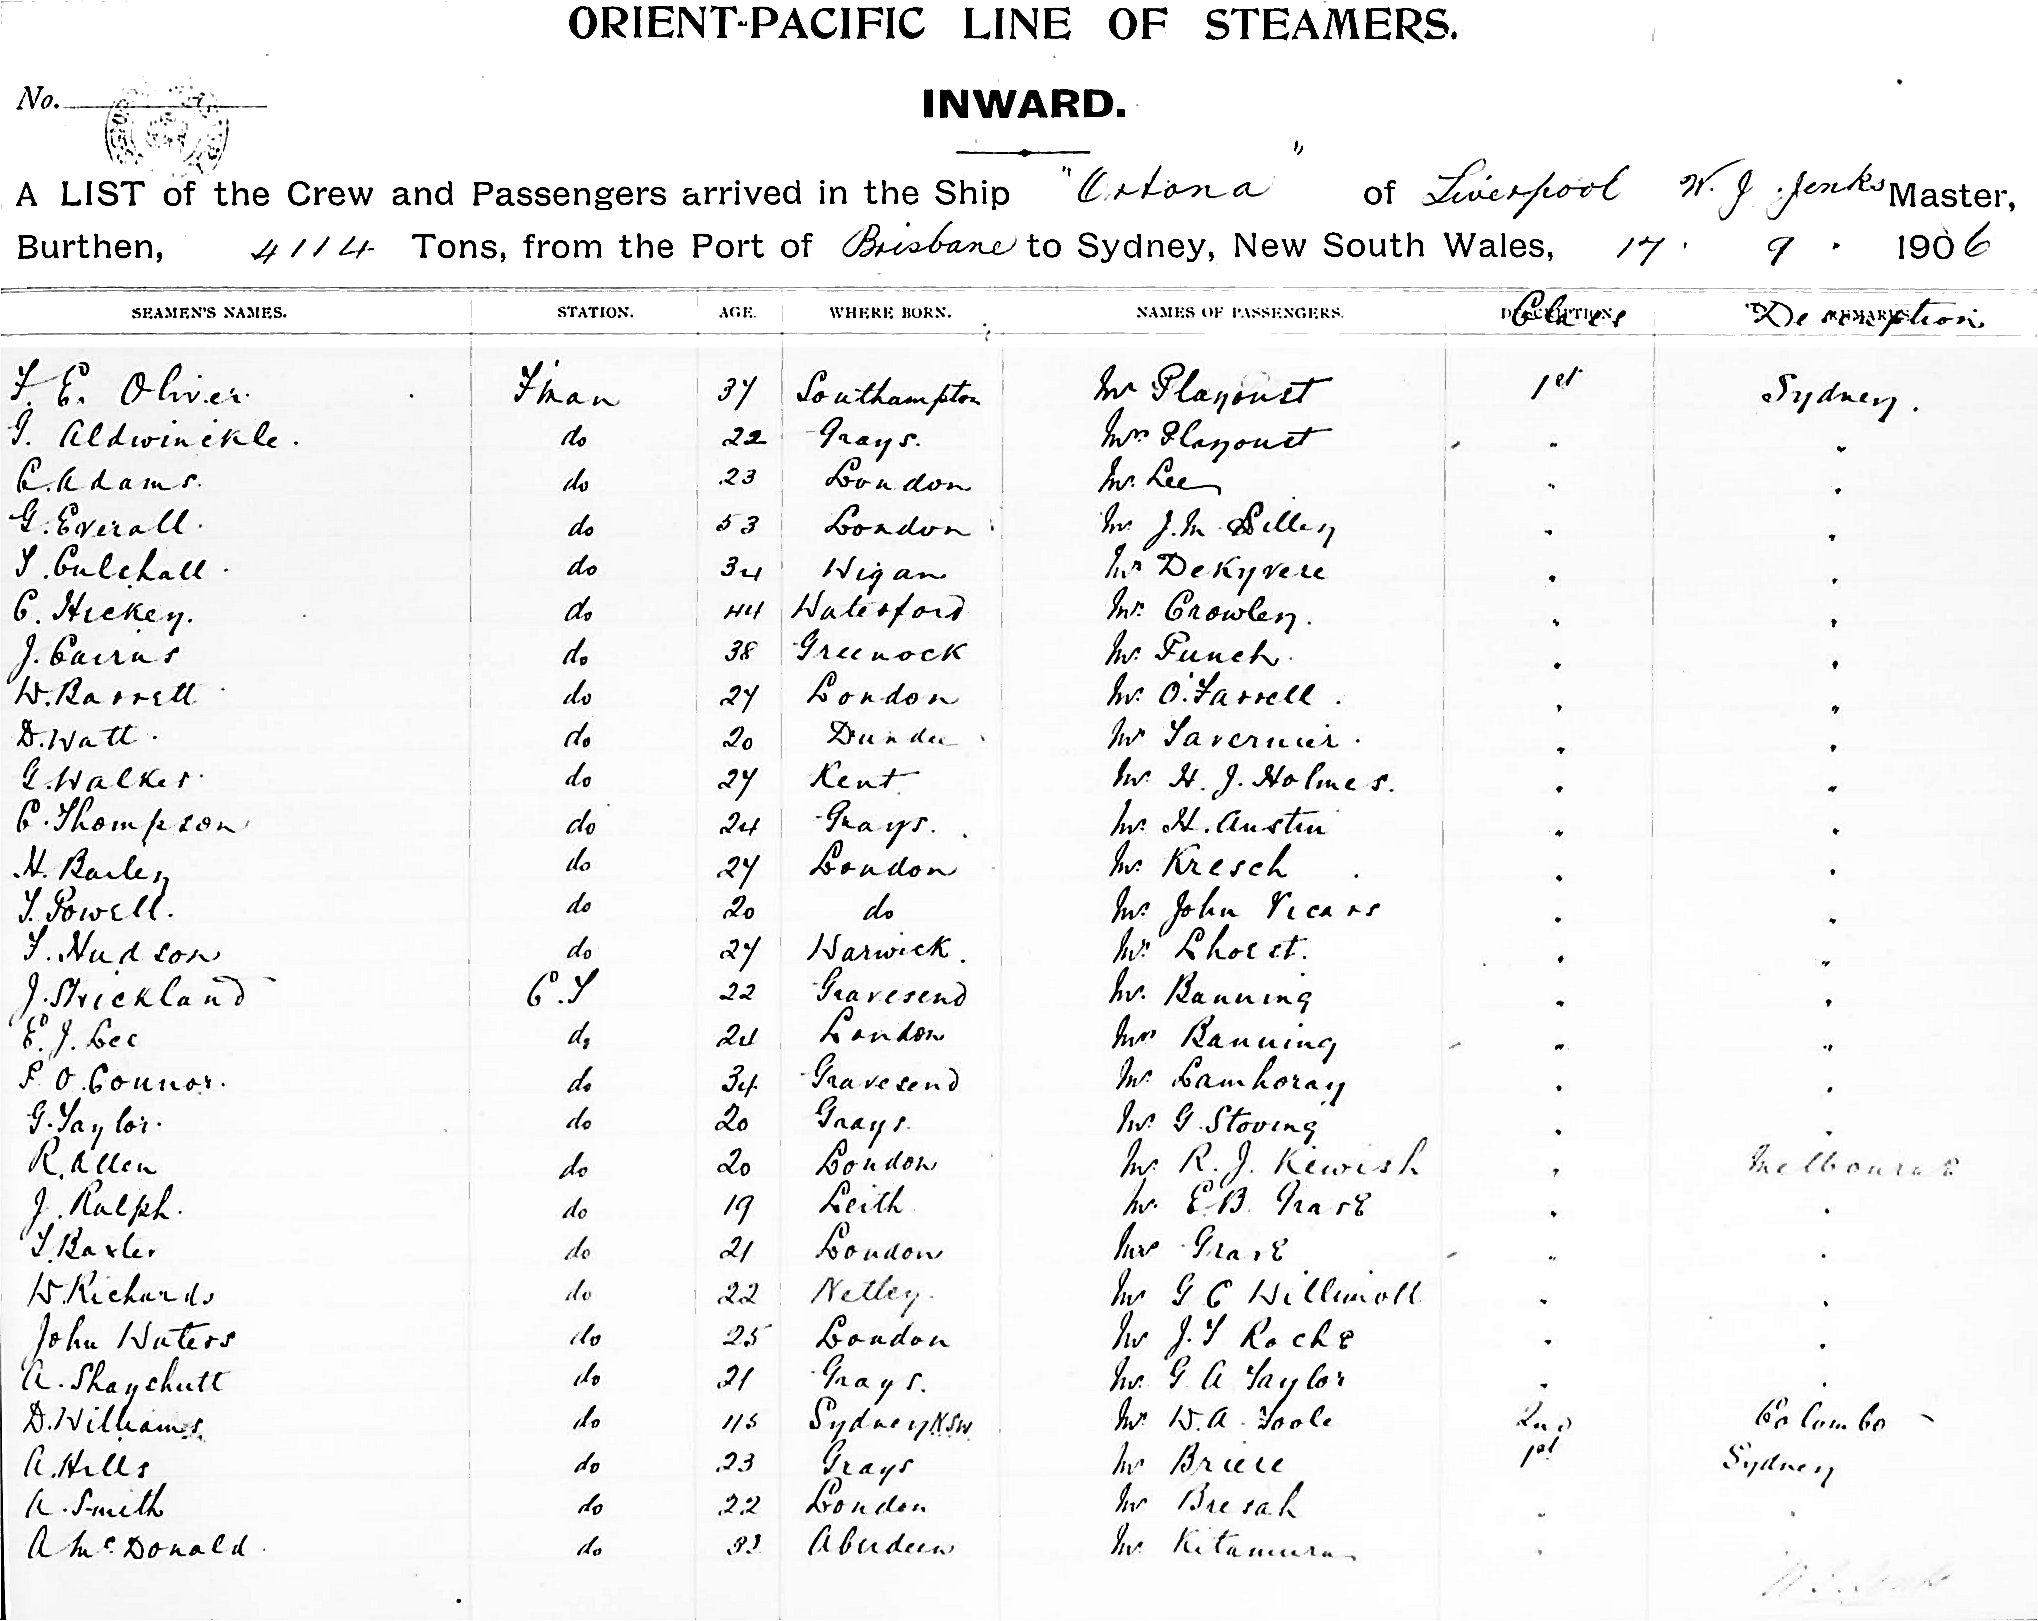 ORIENT-PACIFIC LINE OF STEAMERS.
No.
INWARD.
A LIST of the Crew and Passengers arrived in the Ship "Ortona" of Liverpool W. J. Jenks Master,
Burthen, 4114 Tons, from the Port of Brisbane to Sydney, New South Wales, 17. 9. 1906
SEAMEN'S NAMES. STATION. AGE. WHERE BORN. NAMES OF PASSENGERS. Class Description
F. E. Oliver F'man 37 Southampton Mr Playoust 1st Sydney.
G. Aldwinckle. do 22 Grays. Mrs Playoust " "
C. Adams. do 23 London Mr. Lee " "
G. Everall. do 53 London Mr J. M. Lilley " "
T. Culshall do 34 Wigan Mr DeKyvere " "
C. Hickey. do 44 Waterford Mr. Crowley. " "
J. Cairns do 38 Greenock Mr. Punch. " "
W. Barrett do 27 London Mr. O'Farrell. " "
D. Watt. do 20 Dundee Mr Tavernier. " "
G. Walker. do 27 Kent Mr. H. J. Holmes. " "
C. Thompson do 24 Grays. Mr. H. Austin " "
H. Bailey do 27 London Mr. Kresch " "
T. Powell. do 20 do Mr. John Vicars " "
T. Hudson do 27 Warwick. Mr. Lhoest. " "
J. Strickland C.T 22 Gravesend Mr. Banning " "
E. J. Lee do 24 London Mrs Banning " "
P. O. Connor. do 34 Gravesend Mr. Lamhoray " "
G. Taylor. do 20 Grays. Mr. G. Stoving " "
R. Allen do 20 London Mr. R. J. Kewish " Melbourne
J. Ralph. do 19 Leith Mr. E. B. Grave " "
T. Baxter do 21 London Mrs Grave " "
W. Richards do 22 Netley. Mr G C Willimott " "
John Waters do 25 London Mr J. T Roche " "
A. Shaychutt do 21 Grays. Mr. G A Taylor " "
D. Williams. do 45 Sydney NSW. Mr W. A. Toole 2nd Colombo
A. Hills do 23 Grays Mr Briere 1st Sydney
A. Smith do 22 London Mr Bresah " "
A McDonald do 33 Aberdeen Mr Kitamura " "